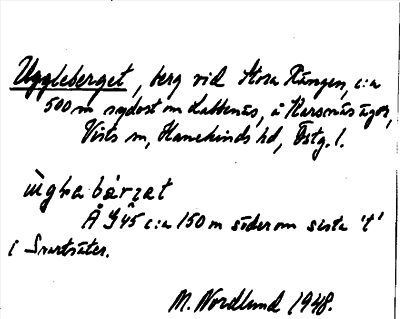 Uggleberget, berg vid Stora Rängen, c:a
500 m sydost om Labbenäs, å Karsnäs ägor,
Vists sn, Hanekinds hd, Östg. l.
ùgləbárjət
Å J 45 c:a 150 m söder om sista 't'
i Svartsäter.
M. Nordlund 1948.